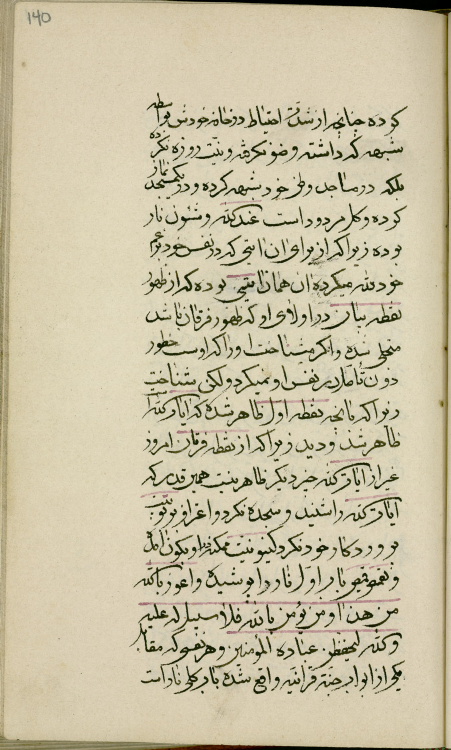 140
کرده چنانچه از شدت احتیاط در خانه خودش بواسطه
شبهه که داشته وضو نگرفته و نیت روزه نکرده
بلکه در مساجد وطن خود شبهه کرده و در نماز
کرده و کل مردود است عند الله و شئون نار
بوده زیرا که از برای ان انیتی که در نفس خود بزعم
خود لله میکرده ان همان انیتی بوده که از ظهور
نقطه بیان در اولای او که ظهور فرقان باشد
متجلی شده و اگر میشناخت او را که اوست چطور
دون تأمل در نفس او نمیکرد ولکن شناخت
زیرا که بانچه نقطه اول ظاهر شده که ایات الله
ظاهر شد و دید زیرا که از نقطه فرقان امروز
غیر از ایات الله چیز دیگر ظاهر نیست همین قدر که
ایات الله را شنید و سجده نکرد و اعتراف
پروردگار خود نکرد کینونیت
نار اول نار را پوشیده و اعوذ بالله
من هذا و من یؤمن بالله فلا سبیل له علیه
و الله لیحفظن عباده المؤمنین و هر نفسی که مقابل
یکی از ابواب جنة قرانیه واقع شده باب کلی نار است